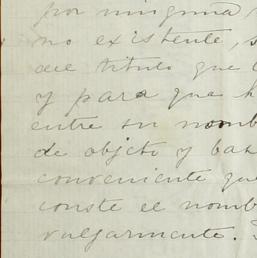 por ninguna
no existente, s
del titulo que
y para que h
entre su nomb
de objeto y bas
conveniente que
conste el nomb
vulgarmente.